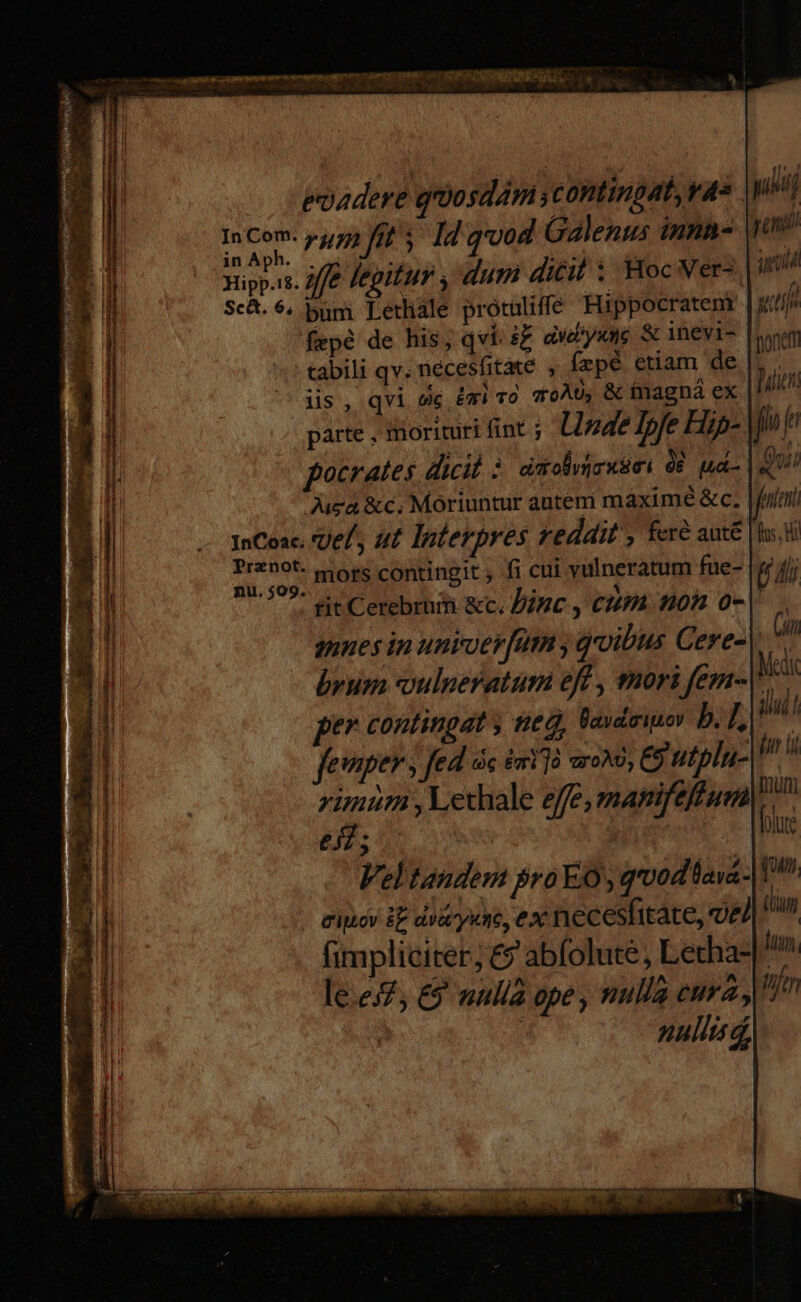 evadere qvosdam, contingat, ra=
In Com. rum fit ; Id qvod Galenus innu-
in Aph.
Hipp. 18. isse legitur , dum dicit : Hoc Ver=
Sect. 6. bum Lethale protulisse Hippocratem
sæpè de his, qvi ἐξ ἀνάγκης & inevi-
tabili qv. necessitate , sæpè etiam de
iis , qvi ὡς ἐπὶ τὸ πολὺ, & magnâ ex
parte , morituri sint ; Unde Ipse Hip-
pocrates dicit : ἀποθνήσκουσι δὲ μά-
λιςα &c. Moriuntur autem maximè &c.
In Coac. vel, ut Interpres reddit , ferè autē
Prænot.
nu. 509. mors contingit , si cui vulneratum fue-
rit Cerebrum &c. hinc , cùm non o-
mnes in universum , qvibus Cere-
brum vulneratum est , mori sem-
per contingat ; neq; θανάσιμον h. l.
semper , sed ὡς ἐπὶ τὸ πολὺ, & ut plu-
rimùm , Lethale esse, manifestum
est ;
Vel tandem pro EO , qvod θανά-
σιμον ἐξ ἀνάγκης, ex necessitate, vel
simpliciter, & absolutè, Letha-
le est , & nullâ ope , nullâ curâ,
nullisq;